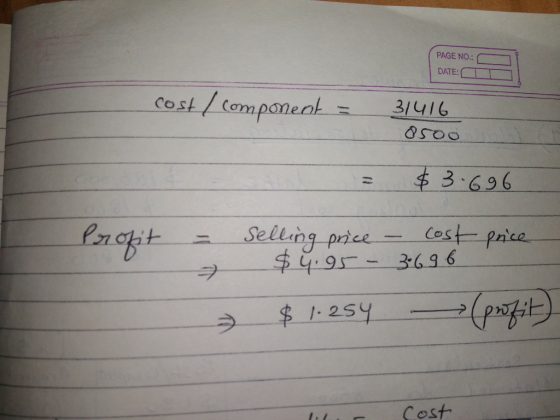 PAGE NO.:
DATE:
cost / component = 31416
8500
= $ 3.696
Profit = Selling price - cost price
⇒ $4.95 - 3.696
⇒ $ 1.254 → (profit)
= Cost